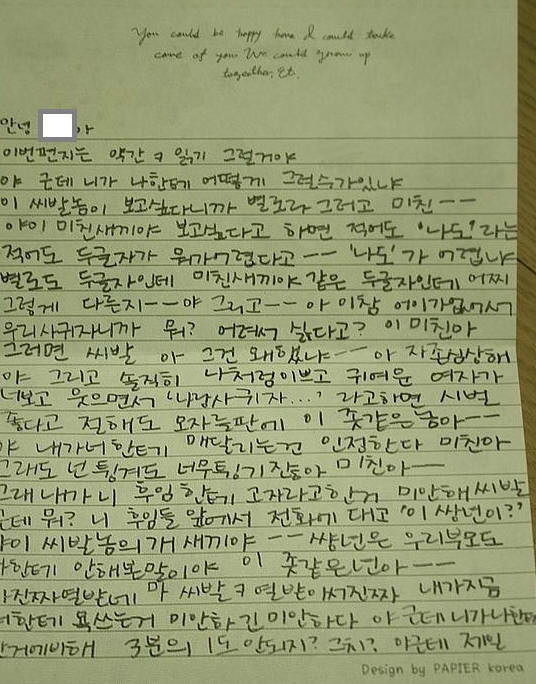 You could be happy here I could take
care of you We could grow up
together, Et.
안녕 아
이번편지는 약간 ㅋ 읽기 그럴거야
야 근데 니가 나한테 어떻게 그럴수가있냐
이 씨발놈이 보고싶다니까 별로라 그러고 미친--
야이 미친새끼야 보고싶다고 하면 적어도 '나도'라는
적어도 두글자가 뭐가어렵다고 -- '나도'가 어렵냐
별로도 두글자인데 미친새끼야 같은 두글자인데 어찌
그렇게 다른지--야 그리고-- 아 이참 어이가없어서
우리사귀자니까 뭐? 어려서 싫다고? 이 미친아
그러면 씨발 아 그건 왜했냐-- 아 자존심상해
야 그리고 솔직히 나처럼이쁘고 귀여운 여자가
너보고 웃으면서 '나랑사귀자...' 라고하면 시벌
좋다고 절해도 모자를판에 이 좆같은놈아--
야 내가너한테 매달리는건 인정한다 미친아
그래도 넌 튕겨도 너무튕기잖아 미친아--
그래 내가 니 후임한테 고자라고한거 미안해 씨발
근데 뭐? 니 후임들 앞에서 전화에 대고 '이 쌍년이?'
야이 씨발놈의개새끼야 -- 썅년은 우리부모도
나한테 안해본말이야 이 좆같은년아--
아진짜열받네 마 씨발ㅋ 열받아서진짜 내가지금
너한테 욕쓰는거 미안하긴미안하다 야 근데 니가나한테
한거에비해 3분의 1도 안되지? 그치? 야근데 제일
Design by PAPIER korea